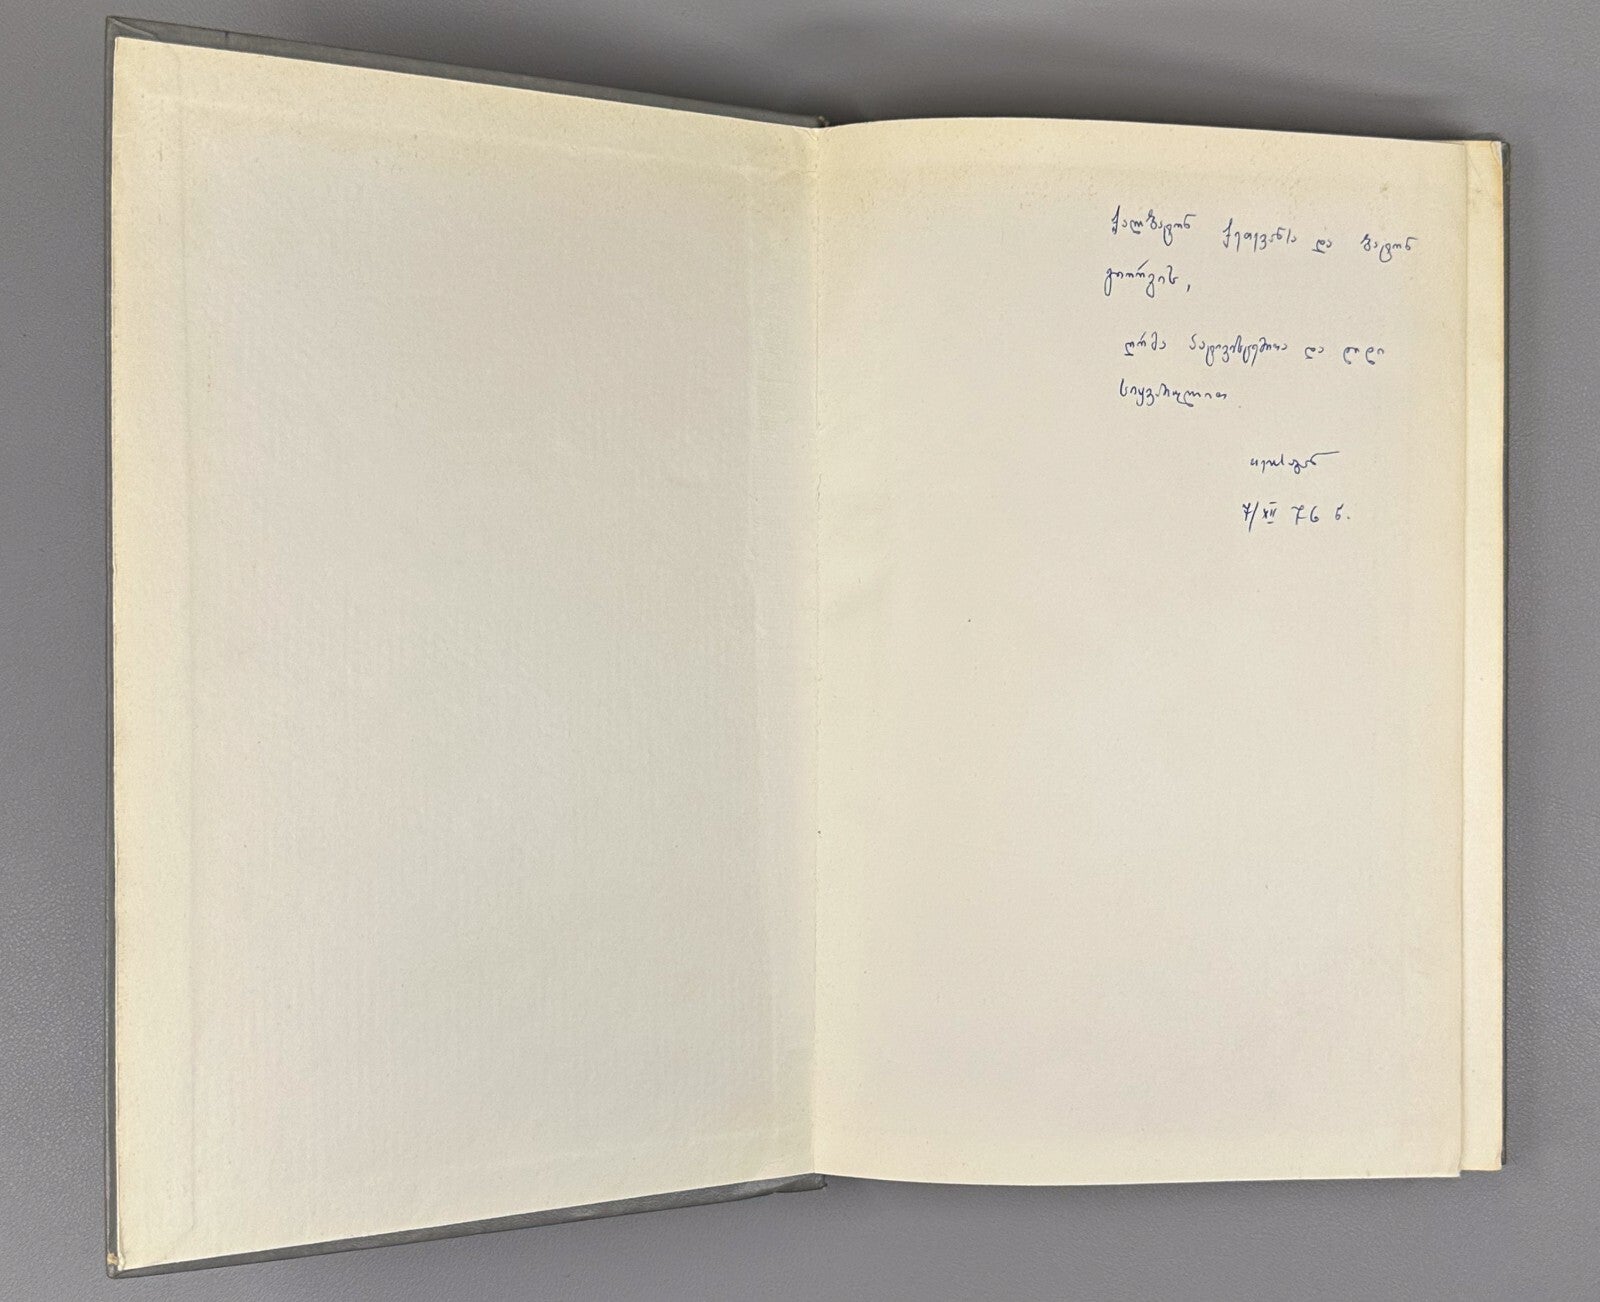 ქალბატონ ქეთევანსა და ბატონ
გიორგის,
ღრმა პატივისცემითა და დიდი
სიყვარულით
7/XII 76 წ.